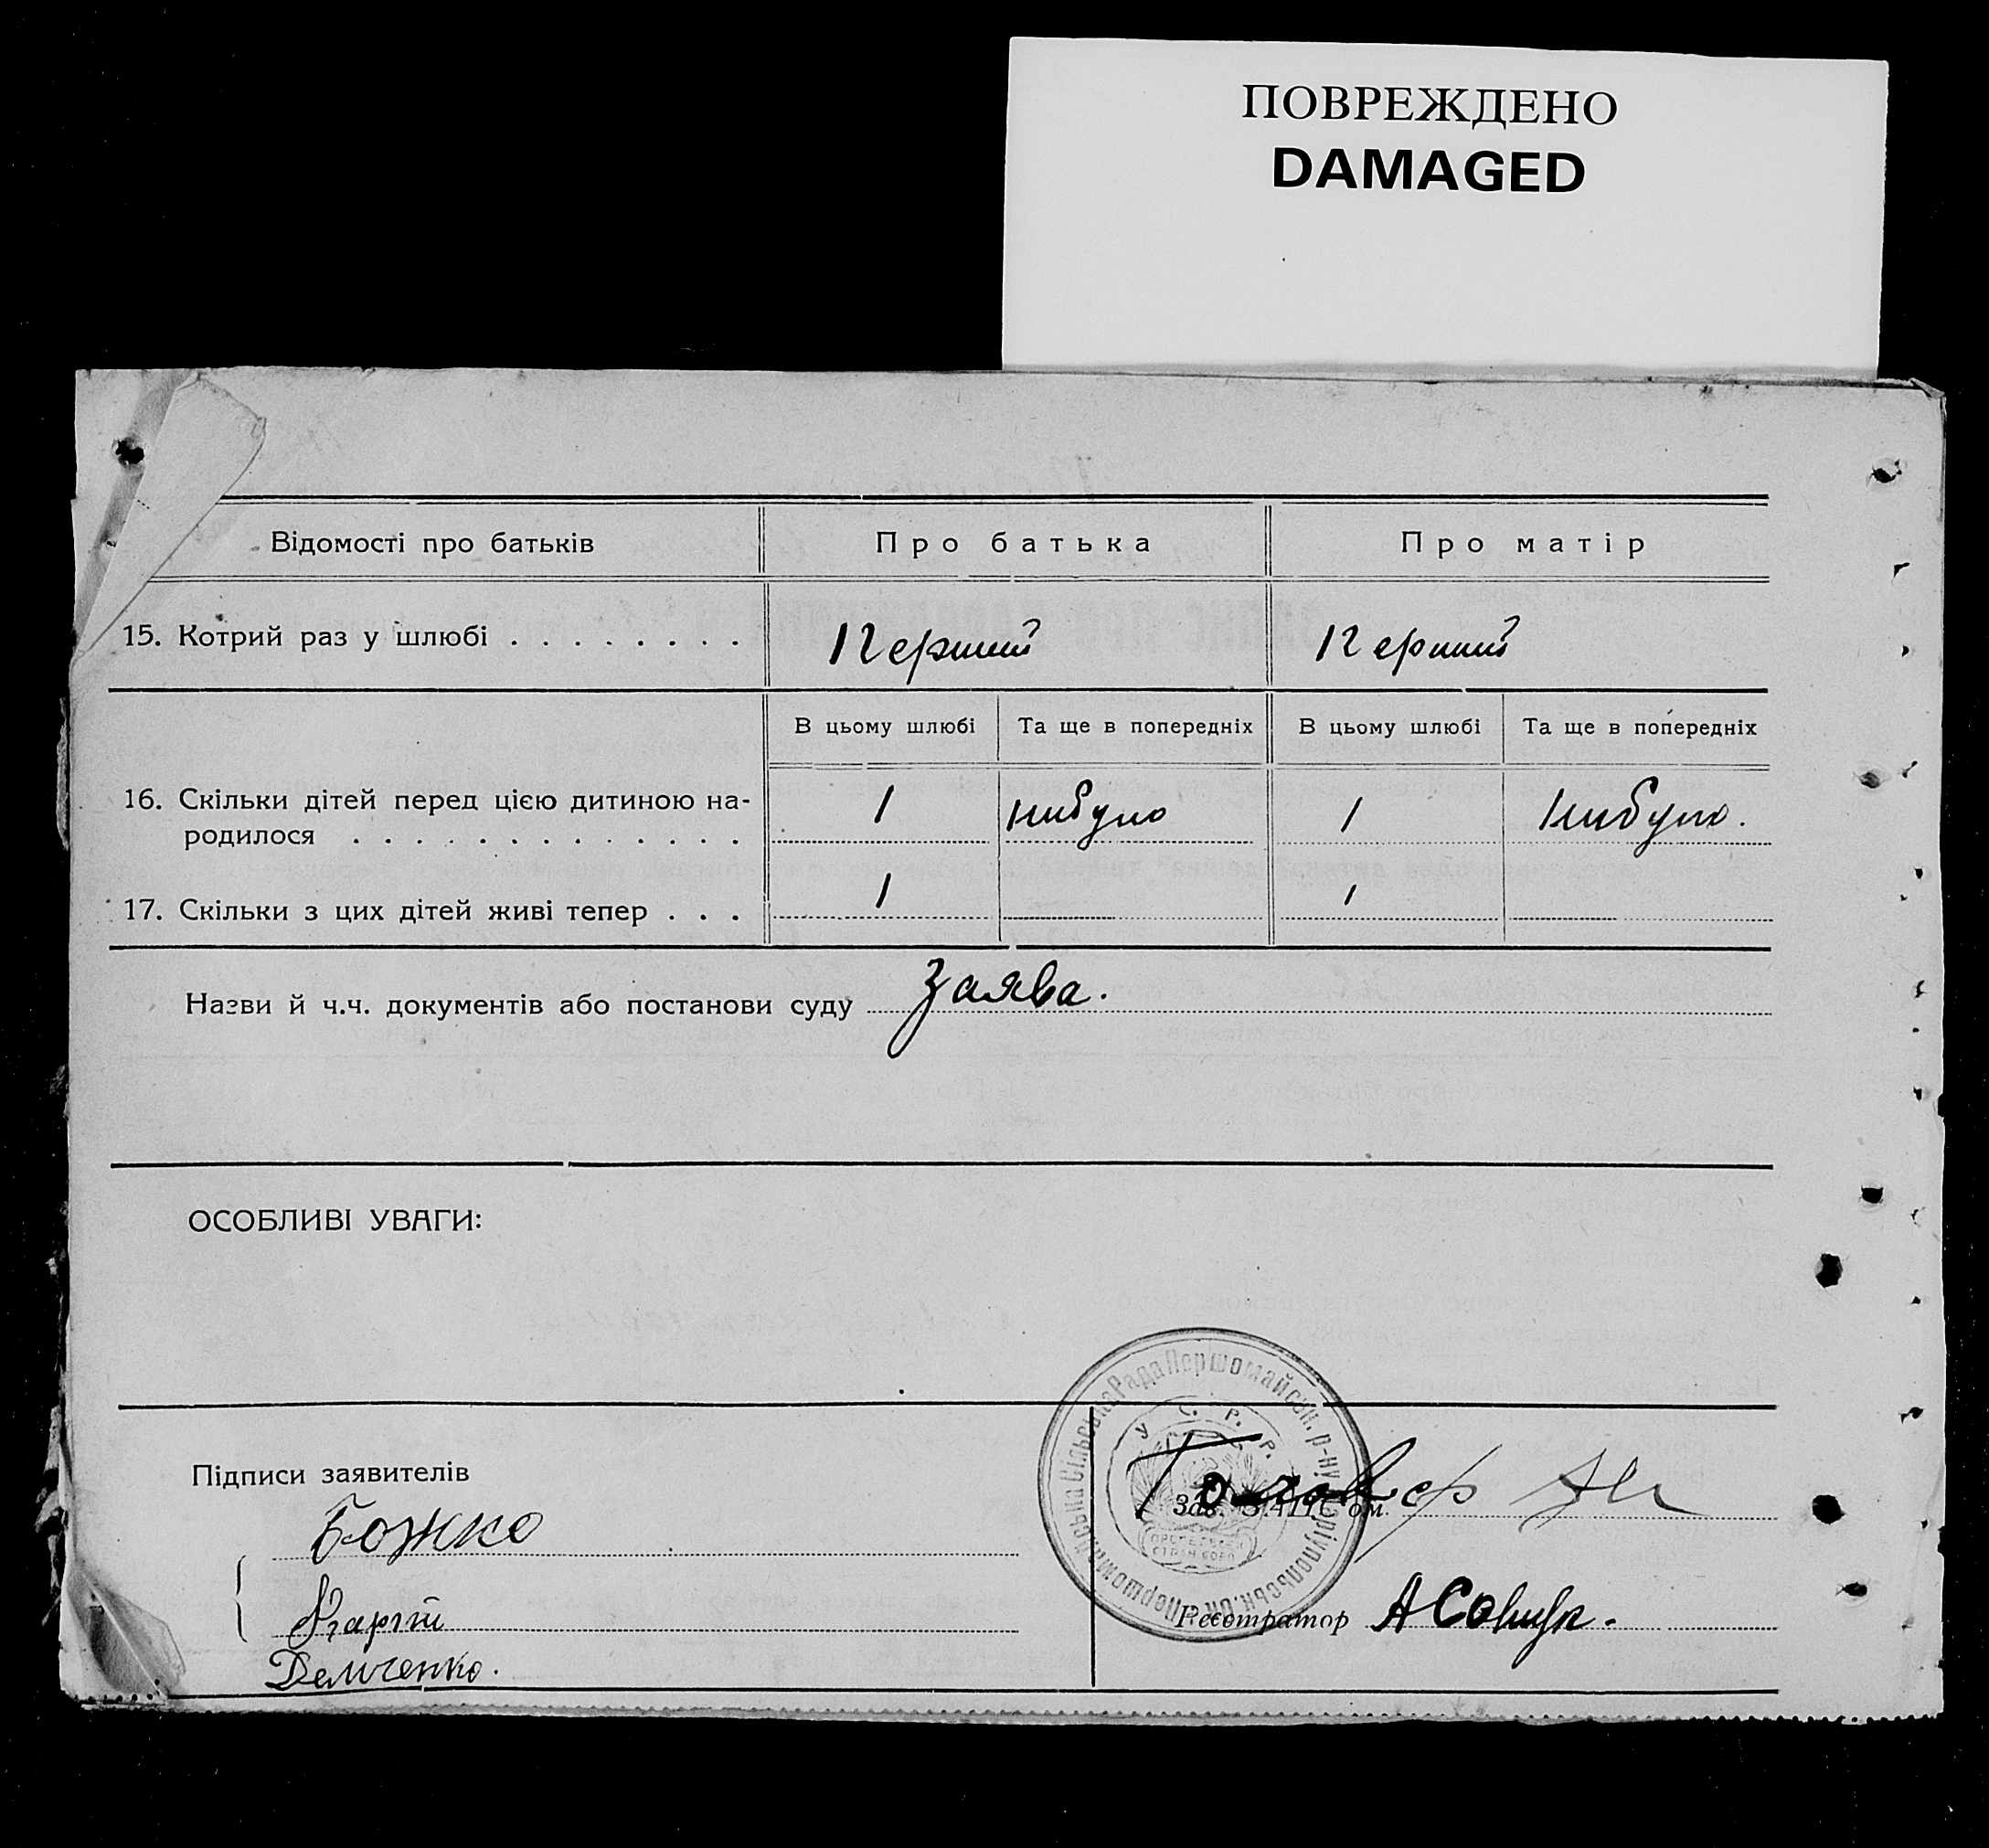 ПОВРЕЖДЕНО
DAMAGED
Відомості про батьків
Про батька
Про матір
15. Котрий раз у шлюбі . . . . . . . .
Перший
Перший
В цьому шлюбі
Та ще в попередніх
В цьому шлюбі
Та ще в попередніх
16. Скільки дітей перед цією дитиною на-
родилося . . . . . . . . . . . . .
1
нибуло
1
нибуло.
17. Скільки з цих дітей живі тепер . . .
1
1
Назви й ч.ч. документів або постанови суду
Заява.
ОСОБЛИВІ УВАГИ:
Підписи заявителів
Божко
Демченко.
Сільська Рада Першомайськ. р-ну Маріупольськ. ок.
У. С. Р. Р.
Зав. ЗАГС'ом
Реєстратор